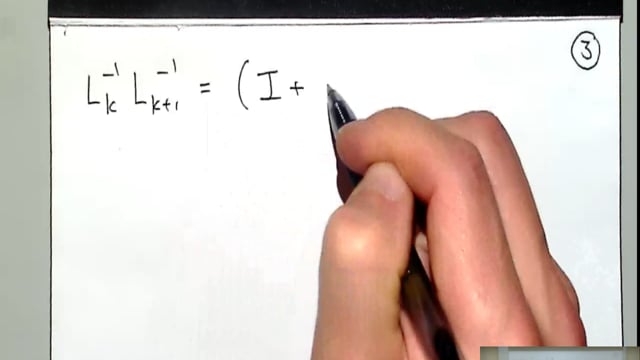 ③
L_k^{-1} L_{k+1}^{-1} = ( I +